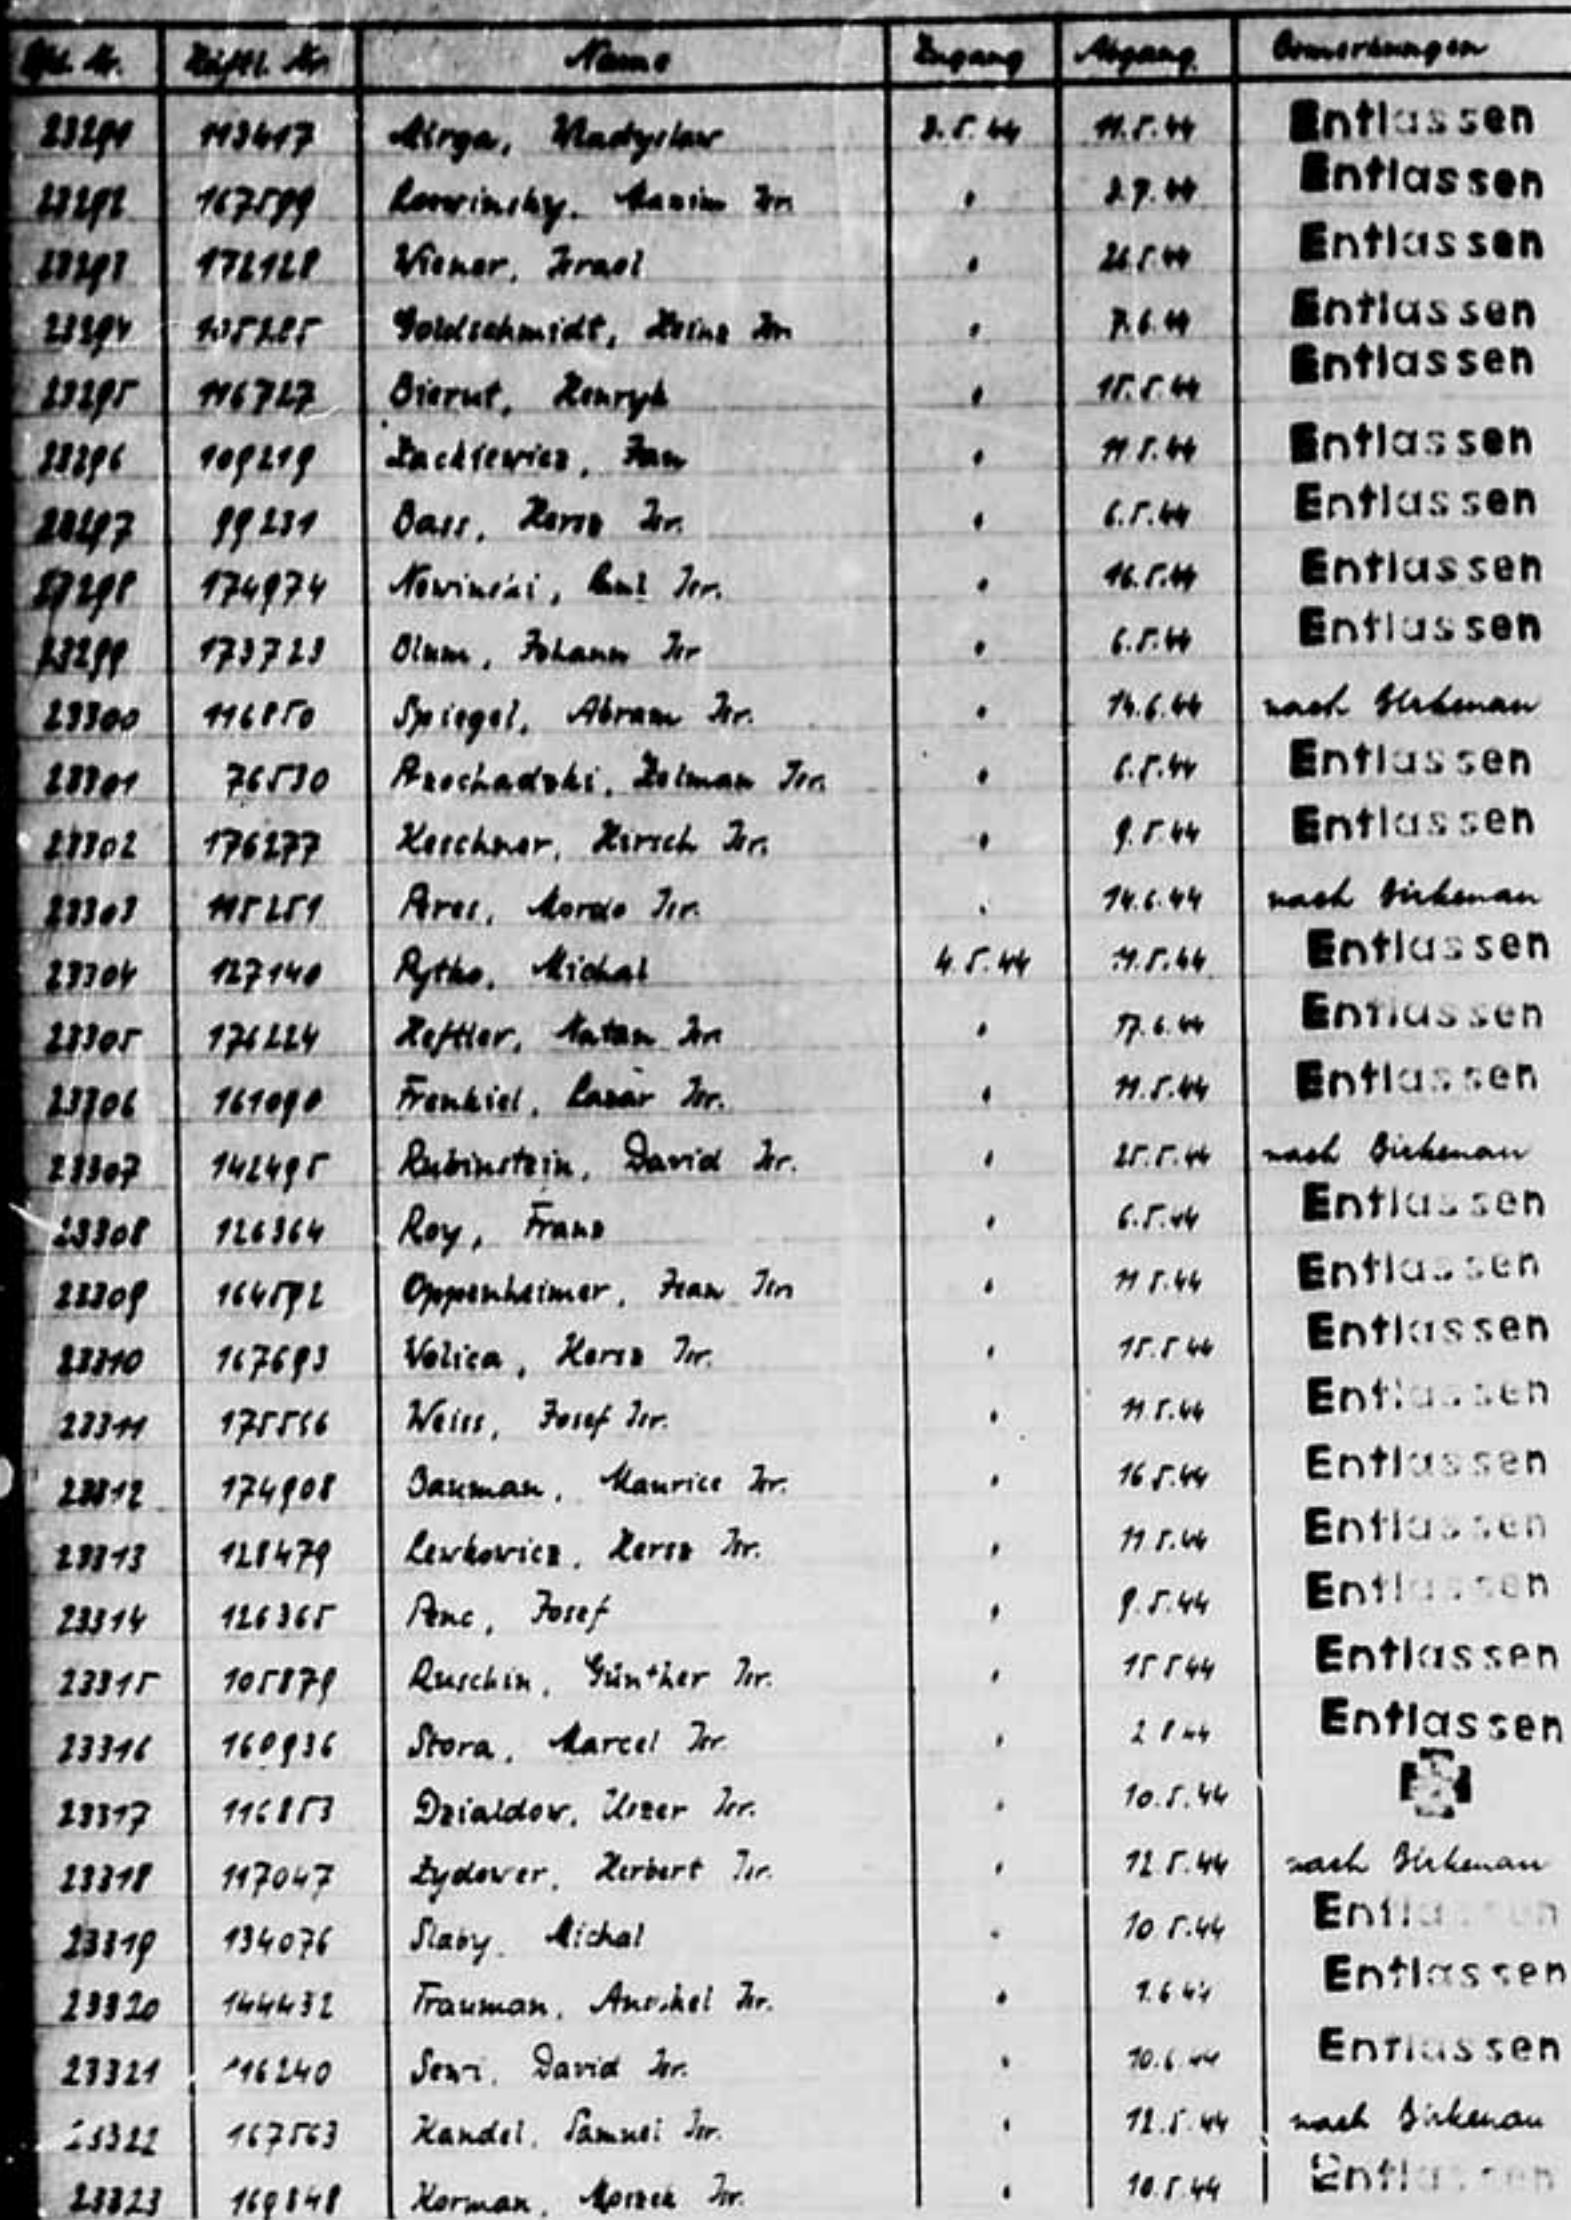 Lfd. Nr. Häftl. Nr. Name Zugang Abgang Bemerkungen
23291 113417 Mirga, Wladyslaw 3.5.44 11.5.44 Entlassen
23292 167599 Isr. " 44 Entlassen
23293 172128 Wiener, Israel " 26.5.44 Entlassen
23294 105285 Goldschmidt, Heinz Isr. " 7.6.44 Entlassen
23295 116727 Bierut, Henryk " 15.5.44 Entlassen
23296 109219 Zackiewicz, Jan " 11.5.44 Entlassen
23297 99231 Bass, Hersz Isr. " 6.5.44 Entlassen
23298 174974 Nowinski, Isr. " 16.5.44 Entlassen
23299 173723 Blum, Johann Isr " 6.5.44 Entlassen
23300 116850 Spiegel, Abram Isr. " 14.6.44 nach Birkenau
23301 76530 Zelman Isr. " 6.5.44 Entlassen
23302 176277 Keschner, Hirsch Isr. " 9.5.44 Entlassen
23303 115251 Isr. " 14.6.44 nach Birkenau
23304 127140 Rytko, Michal 4.5.44 11.5.44 Entlassen
23305 176224 Heftler, Natan Isr " 17.6.44 Entlassen
23306 161090 Frenkiel, Lazar Isr. " 11.5.44 Entlassen
23307 142495 Rubinstein, David Isr. " 25.5.44 nach Birkenau
23308 126364 Roy, Franz " 6.5.44 Entlassen
23309 164592 Oppenheimer, Jean Isr " 11.5.44 Entlassen
23310 167693 Wolica, Hersz Isr. " 15.5.44 Entlassen
23311 175556 Weiss, Josef Isr. " 11.5.44 Entlassen
23312 174908 Bauman, Maurice Isr. " 16.5.44 Entlassen
23313 128479 Lewkowicz, Hersz Isr. " 11.5.44 Entlassen
23314 126365 Penc, Josef " 9.5.44 Entlassen
23315 105879 Ruschin, Günther Isr. " 15.5.44 Entlassen
23316 160936 Stora, Marcel Isr. " 2 8 44 Entlassen
23317 116853 Dzialdow, Uszer Isr. " 10.5.44
23318 117047 Zydower, Herbert Isr. " 12.5.44 nach Birkenau
23319 134076 Slaby, Michal " 10.5.44 Entlassen
23320 144432 Frauman, Isr. " 1.6.44 Entlassen
23321 116240 Sewi, David Isr. " 10.6.44 Entlassen
23322 167563 Kandel, Samuel Isr. " 12.5.44 nach Birkenau
23323 169848 Korman, Moszek Isr. " 10.5.44 Entlassen